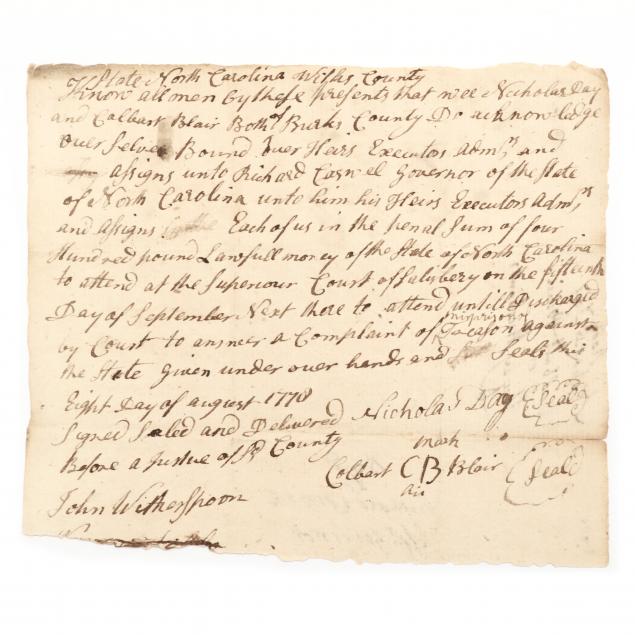 State North Carolina Wilks County
Know all men by these presents that wee Nicholas Day
and Colbart Blair Both of Burks County Do acknowlidge
over selves Bound over Heirs Executors Admrs and
assigns unto Richard Caswel Governor of the State
of North Carolina unto him his Heirs Executors Admrs
and assigns Each of us in the penal Sum of four
Hundred pound Lawfull money of the State of North Carolina
to attend at the Superiour Court of Salsbery on the fifteenth
Day of September Next there to attend untill Discharged
by Court to answer a Complaint of misprison Treason against
the State Given under over hands and Seals this
Eight Day of august 1778
Signed Saled and Delivered Nicholas Day Seal
Before a Justue of Sd County mark
Colbart C B Blair Seald
his
John Witherspoon